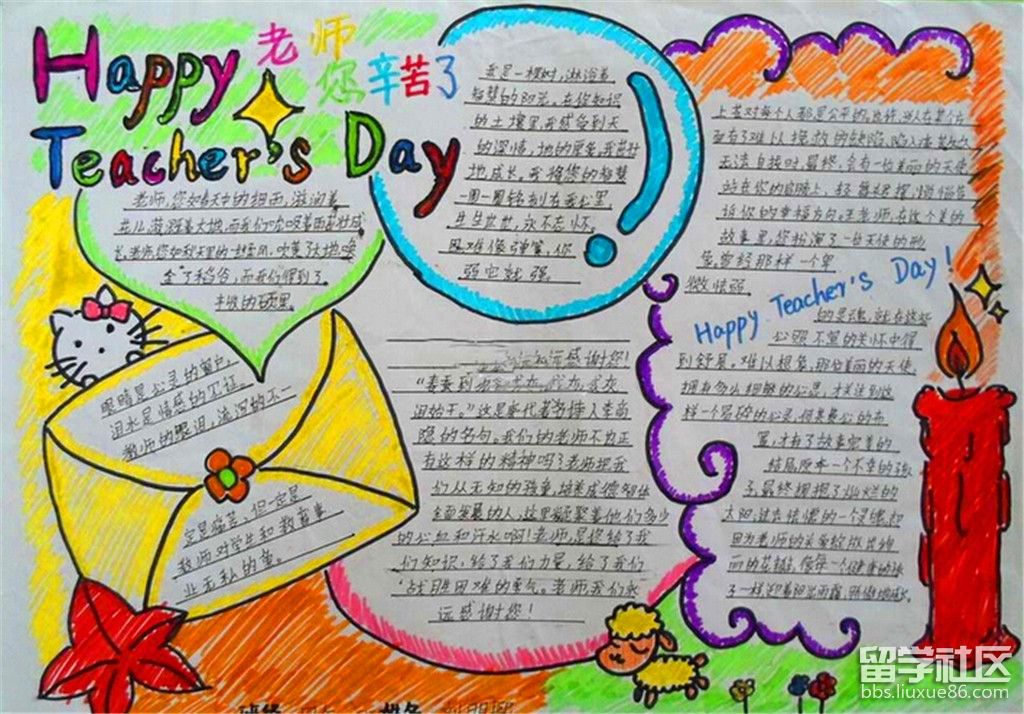 Happy 老师
您辛苦了
Teacher's Day
老师,您如春天中的细雨,滋润着
花儿,滋润着大地,而我们吮吸着茁壮成
长,老师,您如秋天里的一缕金风,吹黄了
金了稻谷,而我们得到了
丰收的硕果。
我是一棵树,沐浴着
智慧的阳光。在你知识
的土壤里,我感受到天
的深情,地的厚爱。我茁壮
地成长,我将您的智慧
一周一周铭刻在我心里,
生生世世,永不忘怀。
困难像弹簧,你
弱它就强。
上苍对每个人都是公平的。也许,当人在某个方
面有了难以挽救的缺陷,陷入痛苦的
无法自拔时,最终,会有一位美丽的天使
站在你的肩膀上,轻舞
诉你的幸福方向。王老师,在这个美的
故事里,您扮演了一位天使的形
象。曾经那样一个卑
微怯弱
Happy Teacher's Day!
的灵魂,就在这些
到舒展。难以想象,那位美丽的天使,
拥有多么细腻的心灵,才关注到这
样一个
置,才有了故事完美的
结局。原本一个不幸的孩
子,最终拥抱了灿烂的
太阳;过去怯懦的一个灵魂,却
因为老师的关爱绽放出绚
丽的花
了一样迎着阳光雨露,骄傲地成长。
眼睛是心灵的窗户,
泪水是情感的见证。
教师的眼泪,流泻的不一
定是痛苦,但一定是
教师对学生和教育事
业无私的爱。
永远感谢您!
“春蚕到死丝方尽,
泪始干。”这是唐代著名诗人李商
隐的名句。我们的老师不为正
有这样的精神吗?老师把我
们从无知的孩童,培养成德智体
全面发展的人,这里凝聚着他们多少
的心血和汗水啊!老师,是您给了我
们知识,给了我们力量,给了我们
战胜困难的勇气。老师我们永
远感谢您!
班级
姓名
留学社区
bbs.liuxue86.com